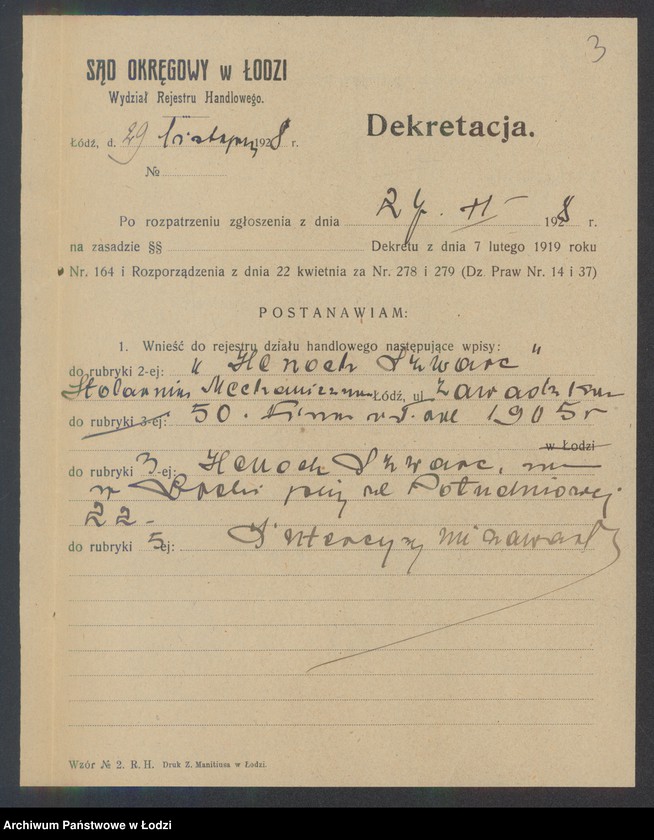 3
SĄD OKRĘGOWY w ŁODZI
Wydział Rejestru Handlowego.
Dekretacja.
Łódź, d. 29 listopada 1928 r.
№
Po rozpatrzeniu zgłoszenia z dnia 27. XI 1928 r.
na zasadzie §§ Dekretu z dnia 7 lutego 1919 roku
Nr. 164 i Rozporządzenia z dnia 22 kwietnia za Nr. 278 i 279 (Dz. Praw Nr. 14 i 37)
POSTANAWIAM:
1. Wnieść do rejestru działu handlowego następujące wpisy:
do rubryki 2-ej: „Henoch Szwarc"
Stolarnia Mechaniczna Łódź, ul Zawadzka
do rubryki 3-ej: 50. Firma 1905 r
w Łodzi
do rubryki 3-ej: Henoch Szwarc,
w Łodzi przy ul Południowej
22-
do rubryki 5ej: Intercyzy nie zawarł
Wzór № 2. R. H. Druk Z. Manitiusa w Łodzi.
Archiwum Państwowe w Łodzi